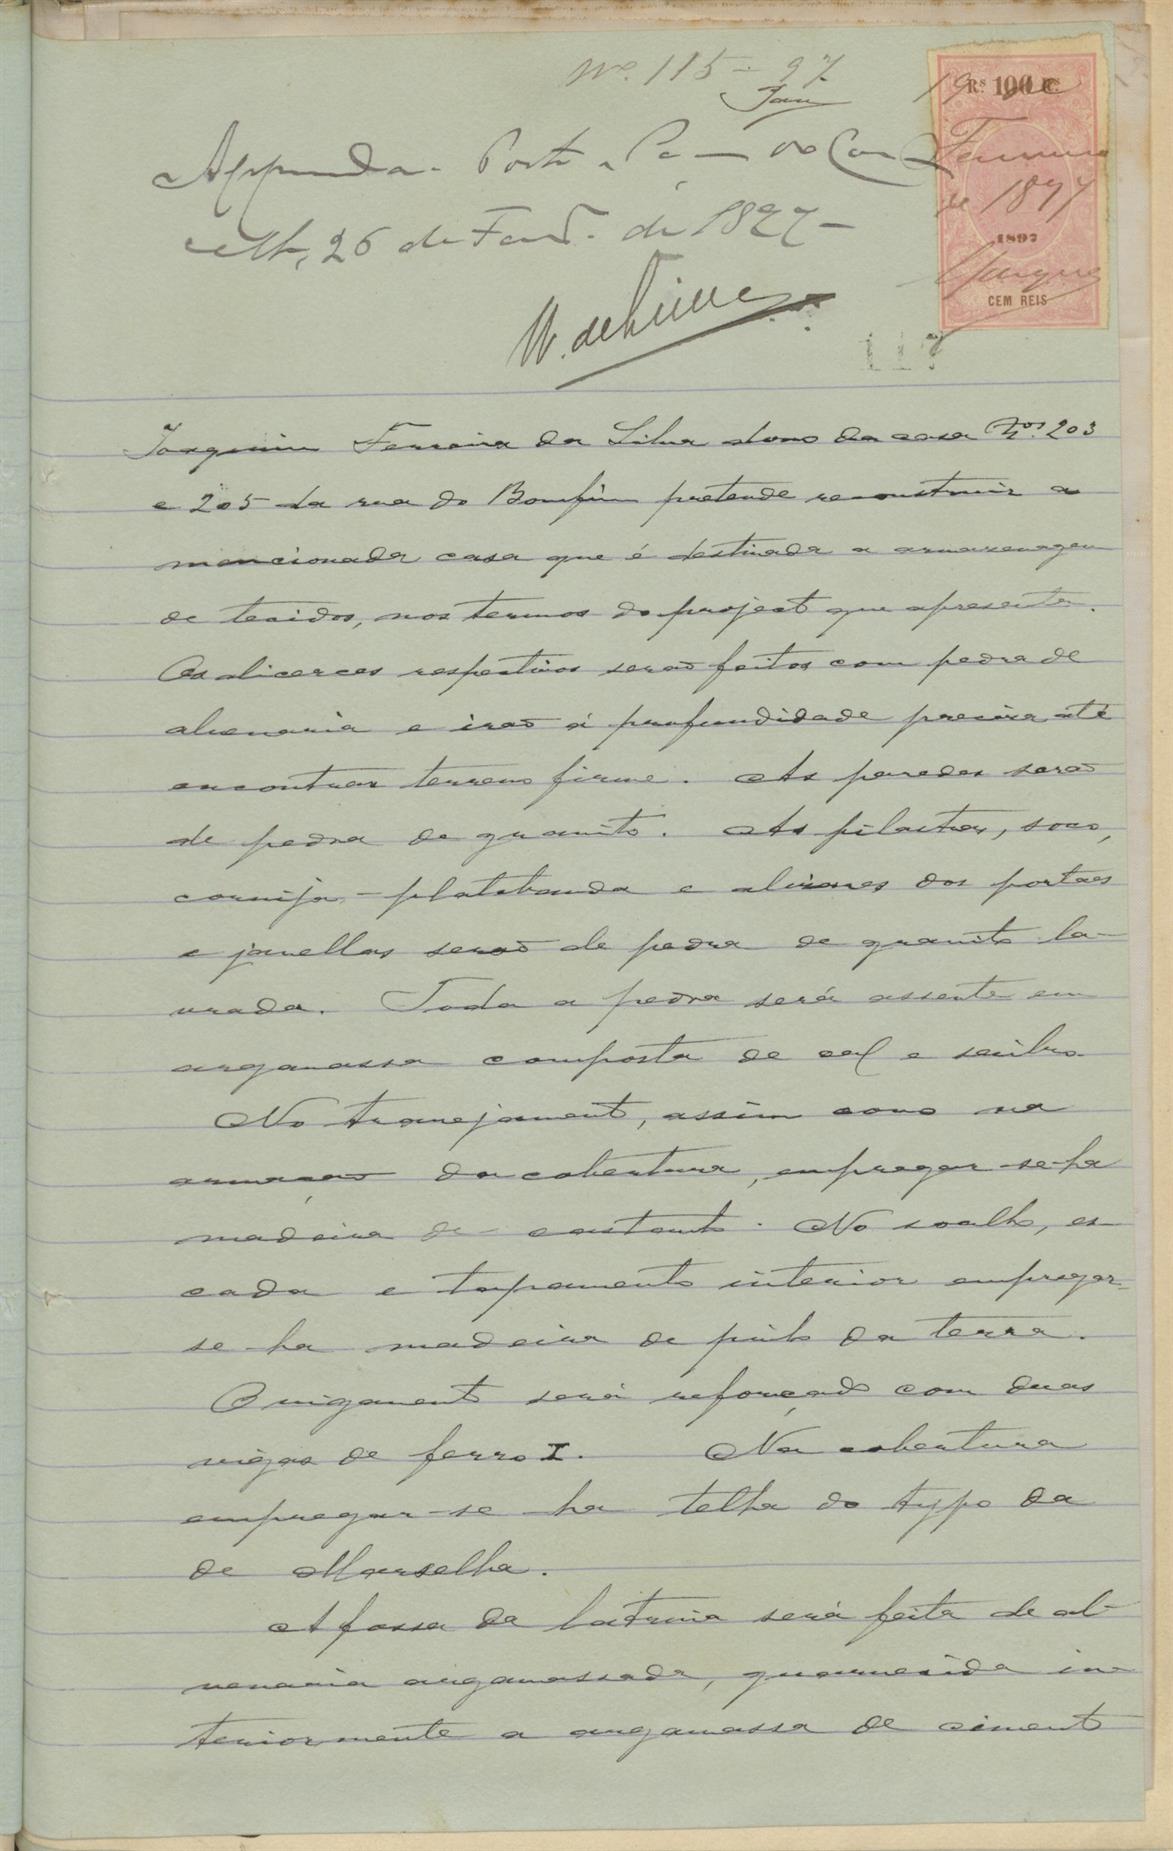 Nº 115 - 97
Rs. 100 Rs.
19 de
Approvada. Porto e Paços do Conc.º
Fevereiro
de 1897
26 de Fev.º de 1897 -
1897
Marques
CEM REIS
117
Joaquim Ferreira da Silva dono da casa Nos. 203
e 205 da rua do Bomfim pretende reconstruir a
mencionada casa que é destinada a armazenagem
de tecidos, nos termos do project que apresenta.
Os alicerces respectivos serão feitos com pedra de
alvenaria e irão á profundidade precisa até
encontrar terreno firme. As paredes serão
de pedra de granito. As pilastras, soco,
cornija - platibanda e alisares dos portaes
e janellas serão de pedra de granito la-
vrada. Toda a pedra será assente em
argamassa composta de cal e saibro.
No travejamento, assim como na
armação da cobertura, empregar-se-ha
madeira de castanho. No soalho, es-
cada e tapamento interior empregar-
se-ha madeira de pinho da terra.
O vigamento será reforçado com duas
vigas de ferro I. Na cobertura
empregar-se-ha telha do typo da
de Marselha.
A fossa da latrina será feita de al-
venaria argamassada, guarnecida in-
teriormente a argamassa de cimento